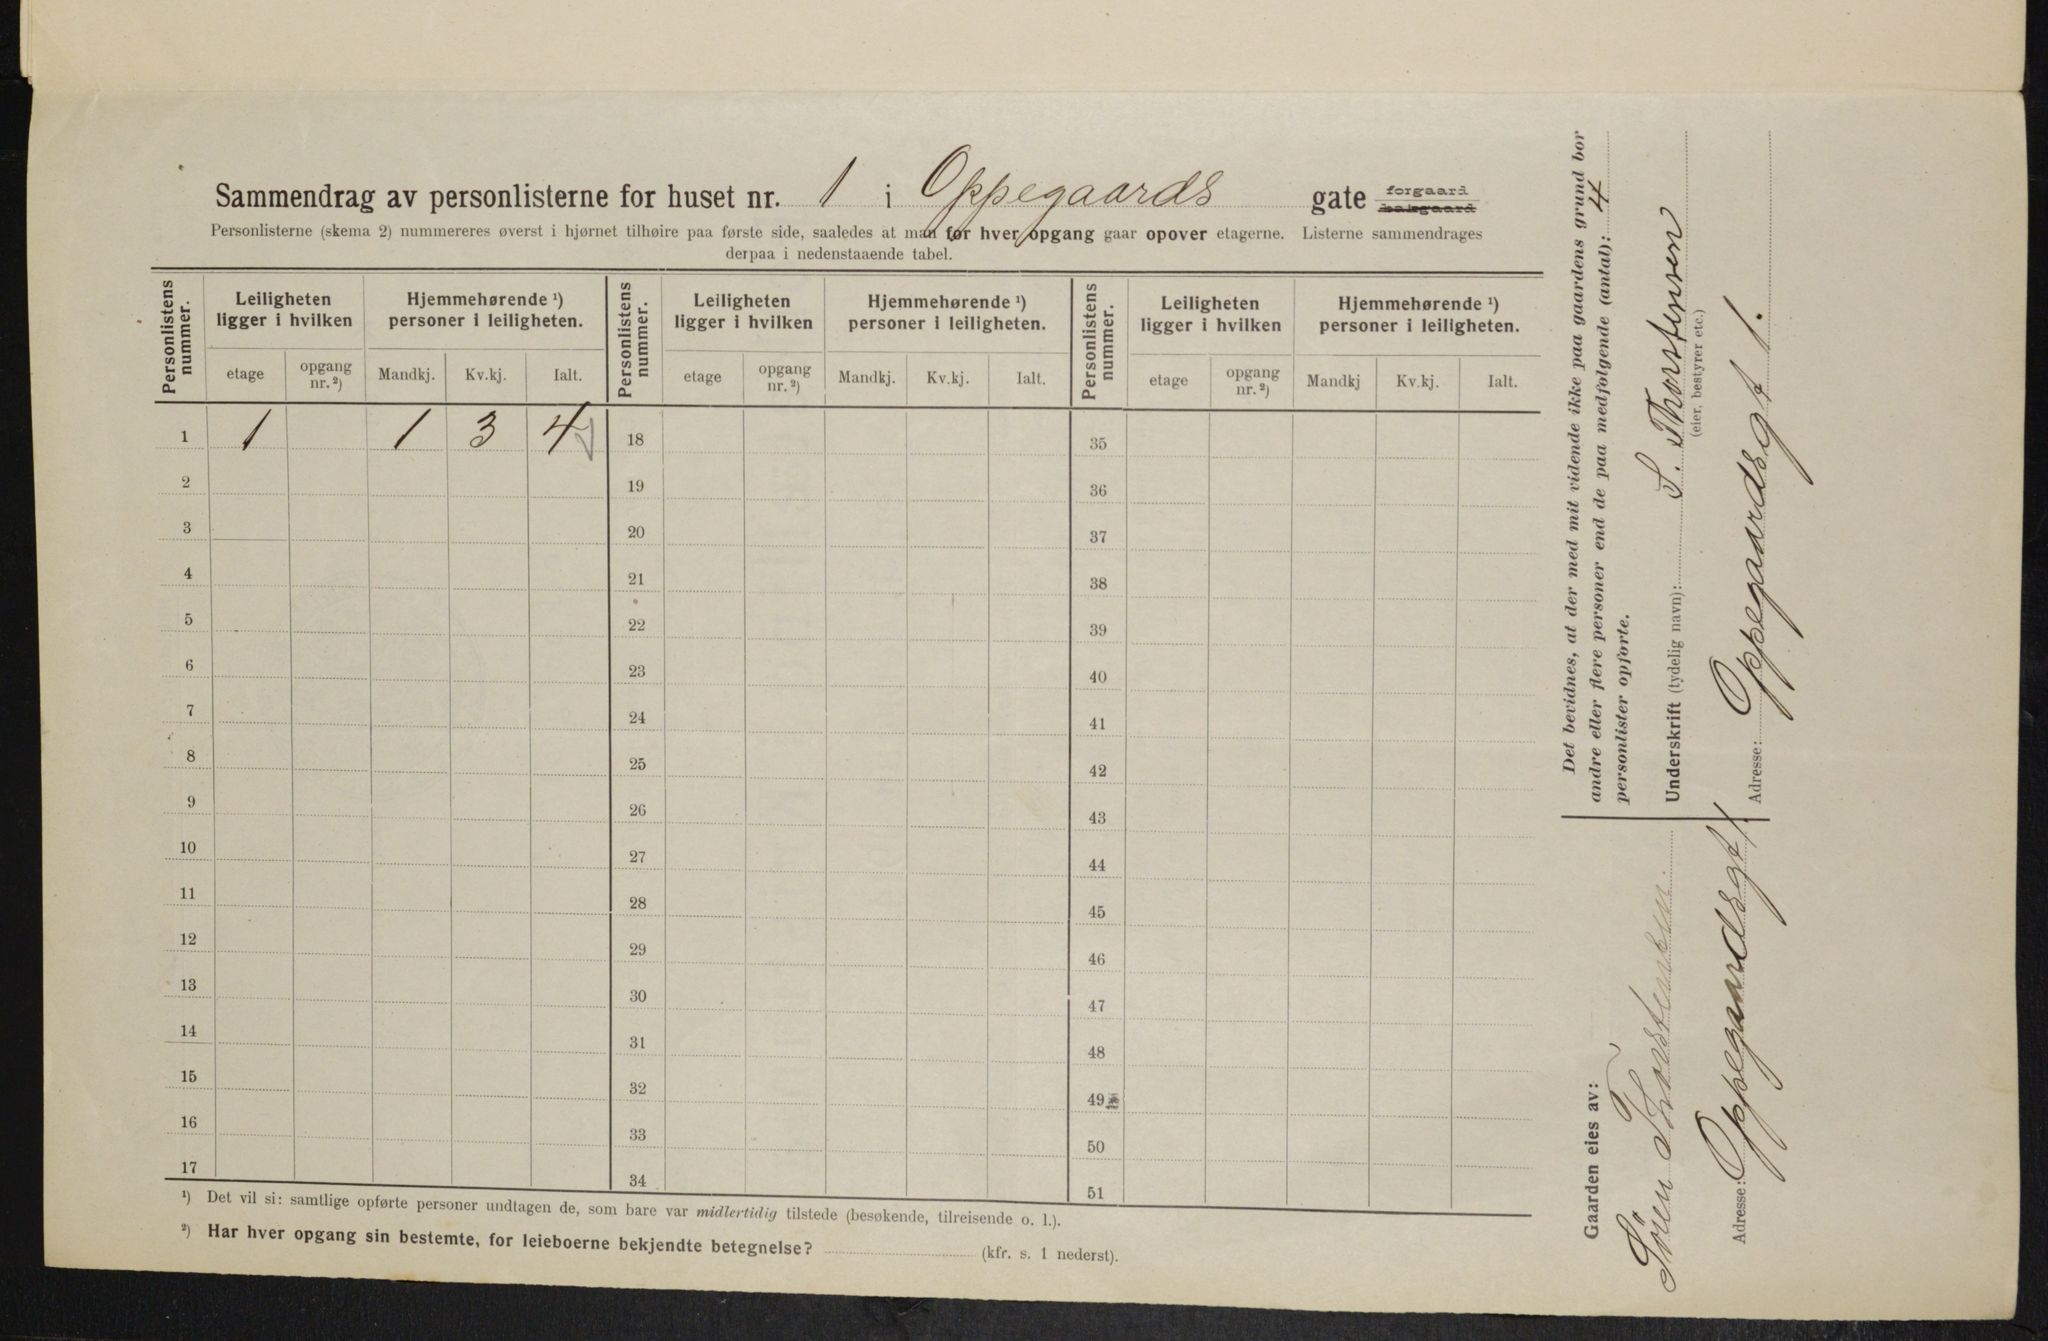 Sammendrag av personlisterne for huset nr. 1 i Oppegaards gate forgaard bakgaard
Personlisterne (skema 2) nummereres øverst i hjørnet tilhøire paa første side, saaledes at man før hver opgang gaar opover etagerne. Listerne sammendrages
derpaa i nedenstaaende tabel.
Personlistens nummer. Leiligheten ligger i hvilken Hjemmehørende ¹) personer i leiligheten. Personlistens nummer. Leiligheten ligger i hvilken Hjemmehørende ¹) personer i leiligheten. Personlistens nummer. Leiligheten ligger i hvilken Hjemmehørende ¹) personer i leiligheten.
etage opgang nr. ²) Mandkj. Kv.kj. Ialt. etage opgang nr. ²) Mandkj. Kv.kj. Ialt. etage opgang nr. ²) Mandkj Kv.kj. Ialt.
1 1 1 3 4 18 35
2 19 36
3 20 37
4 21 38
5 22 39
6 23 40
7 24 41
8 25 42
9 26 43
10 27 44
11 28 45
12 29 46
13 30 47
14 31 48
15 32 49
16 33 50
17 34 51
¹) Det vil si: samtlige opførte personer undtagen de, som bare var midlertidig tilstede (besøkende, tilreisende o. l.).
²) Har hver opgang sin bestemte, for leieboerne bekjendte betegnelse? (kfr. s. 1 nederst).
Det bevidnes, at der med mit vidende ikke paa gaardens grund bor
andre eller flere personer end de paa medfølgende (antal): 4
personlister opførte.
Underskrift (tydelig navn): S. Thorstensen
(eier, bestyrer etc.)
Adresse: Oppegaardsgt 1.
Gaarden eies av:
Sören Thorstensen.
Adresse: Oppegaardsgt 1.